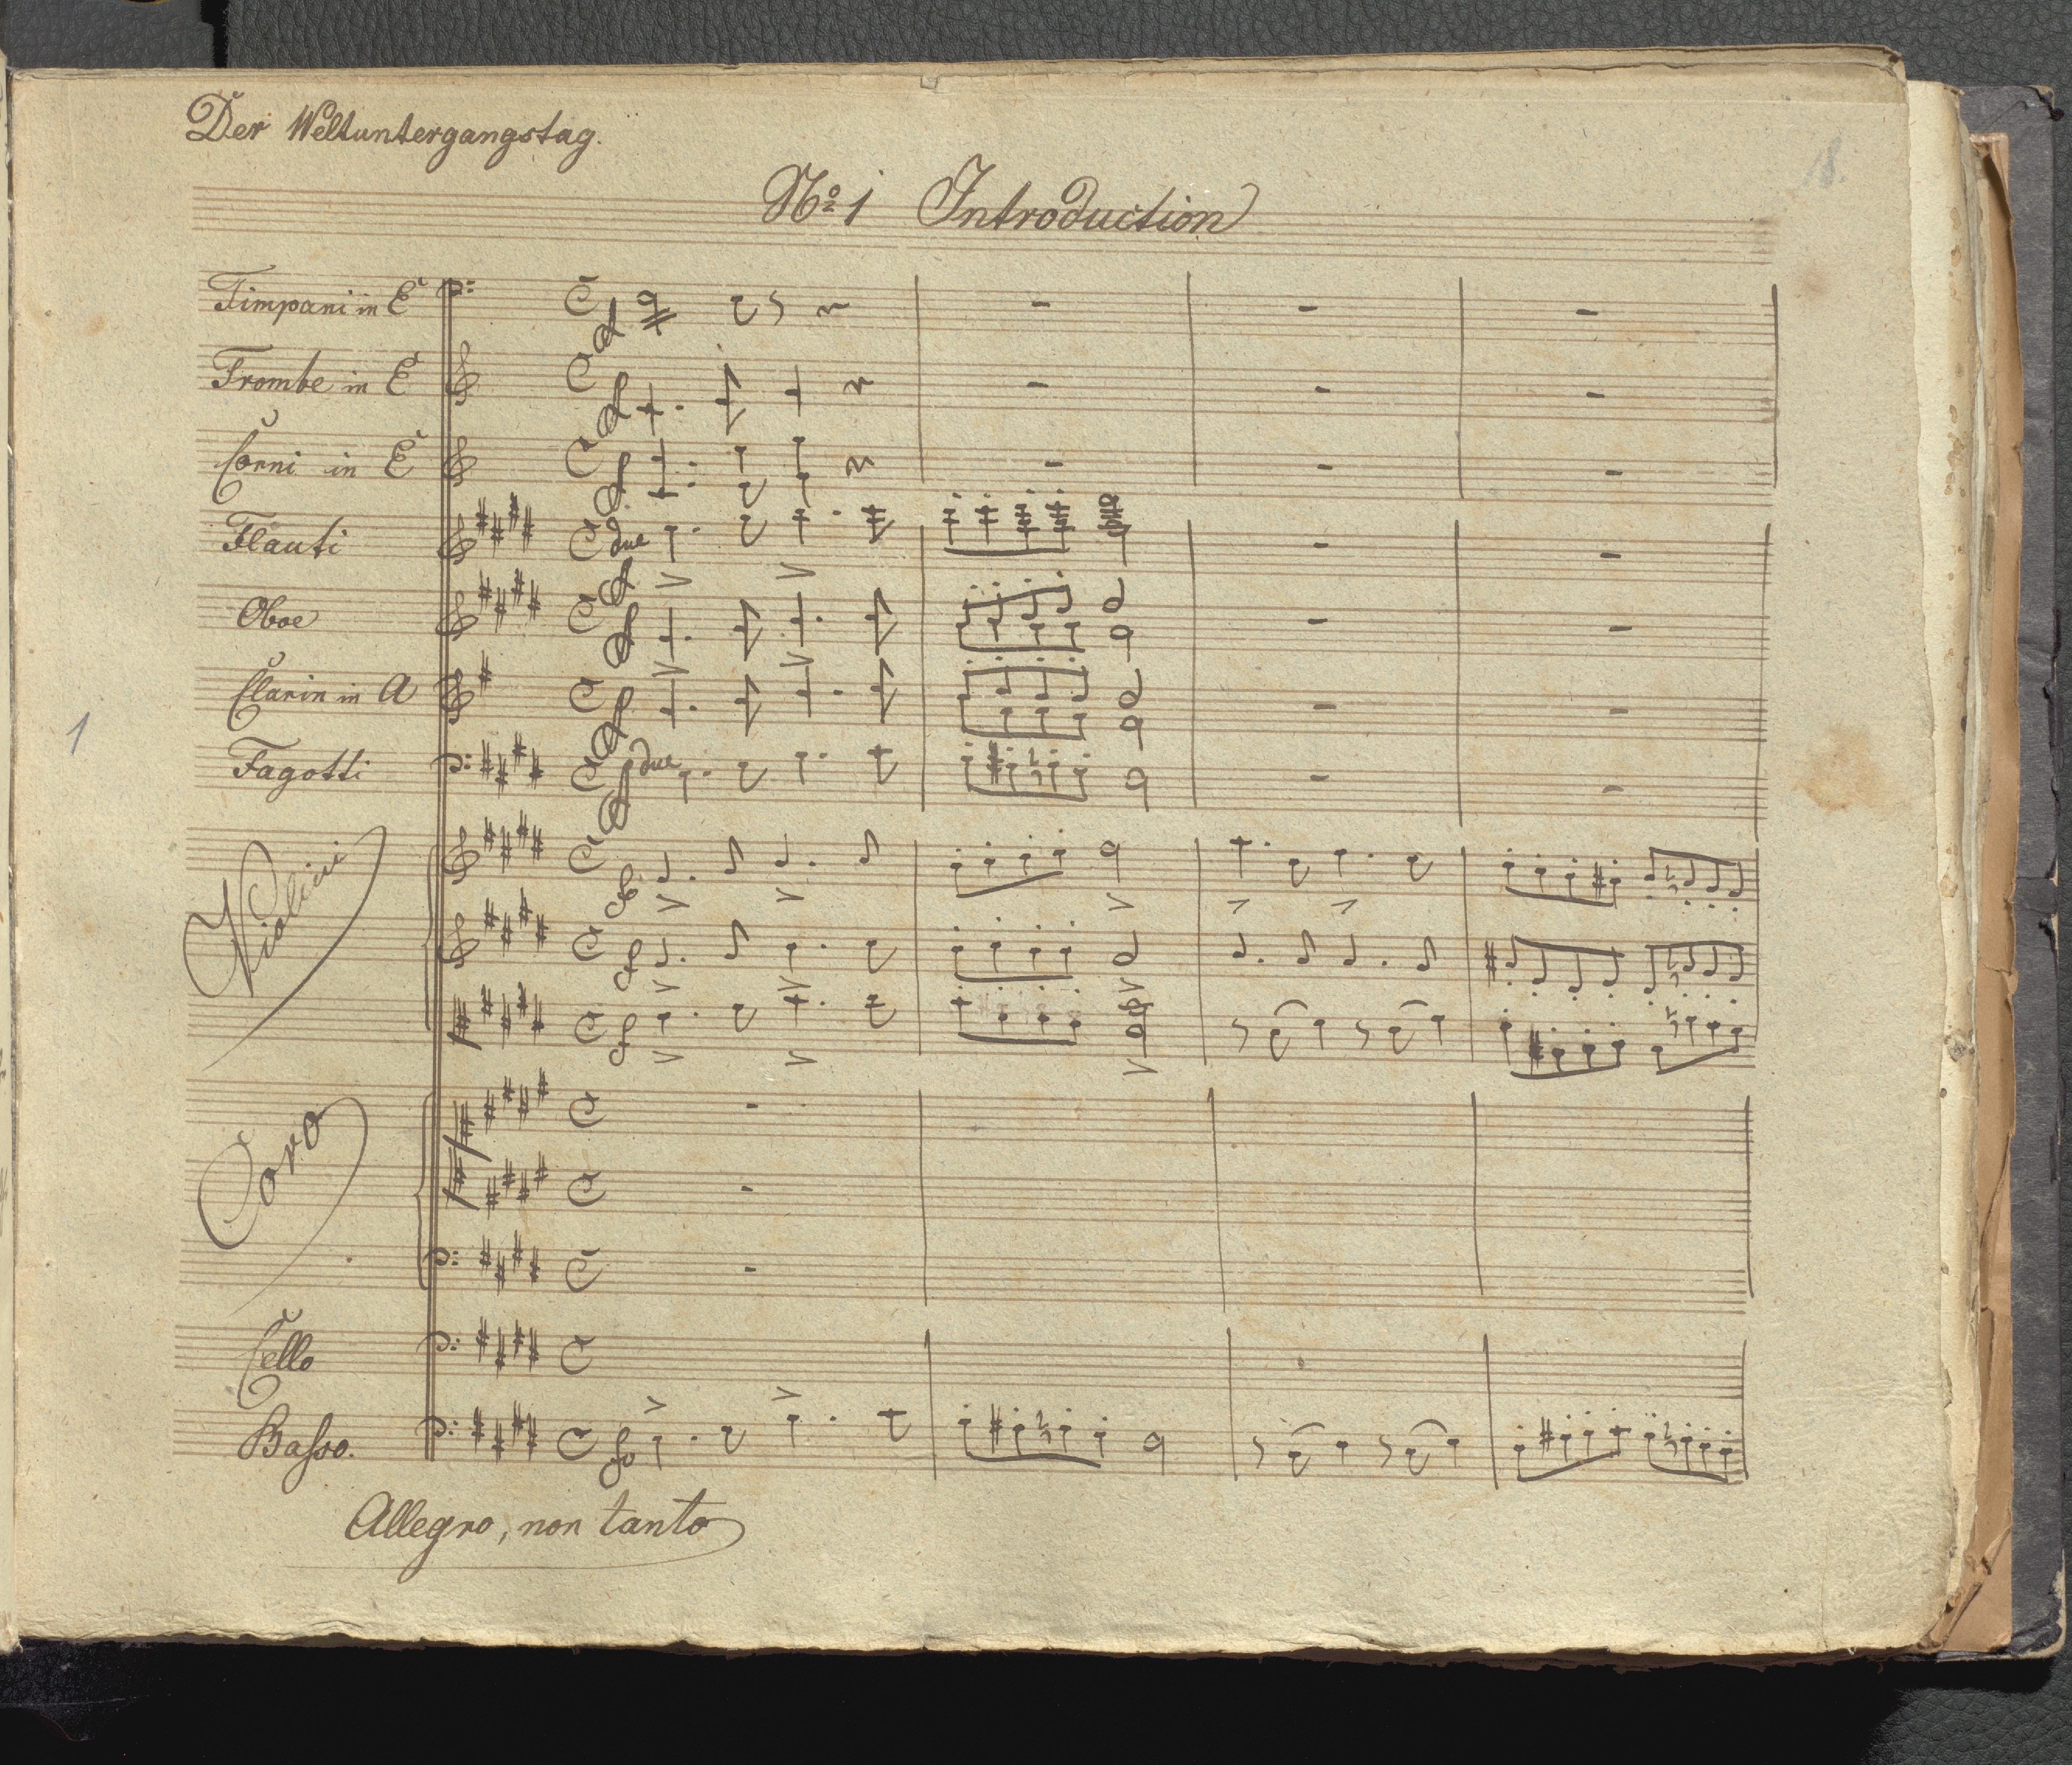 Der Weltuntergangstag.
18.
No. 1 Introduction
Timpani in E
Trombe in E
Corni in E
Flauti due
Oboe
Clarin in A
1
Fagotti due
Violini
Coro
Cello
Basso.
Allegro, non tanto